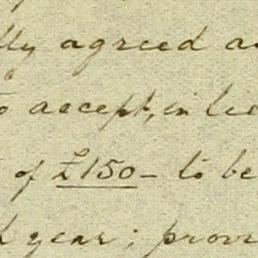 agreed
to accept, in
of £150 - to be
year; prov